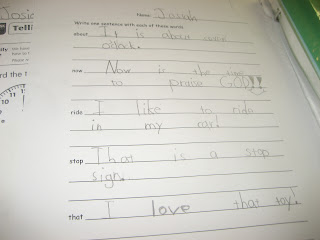 Josia
Name Josiah
Write one sentence with each of these words.
Telli
about It is about one
oclock.
now Now is the time
to praise GOD!!
rd the t
10 11
ride I like to ride
in my car!
stop That is a stop
sign.
that I love that toy!